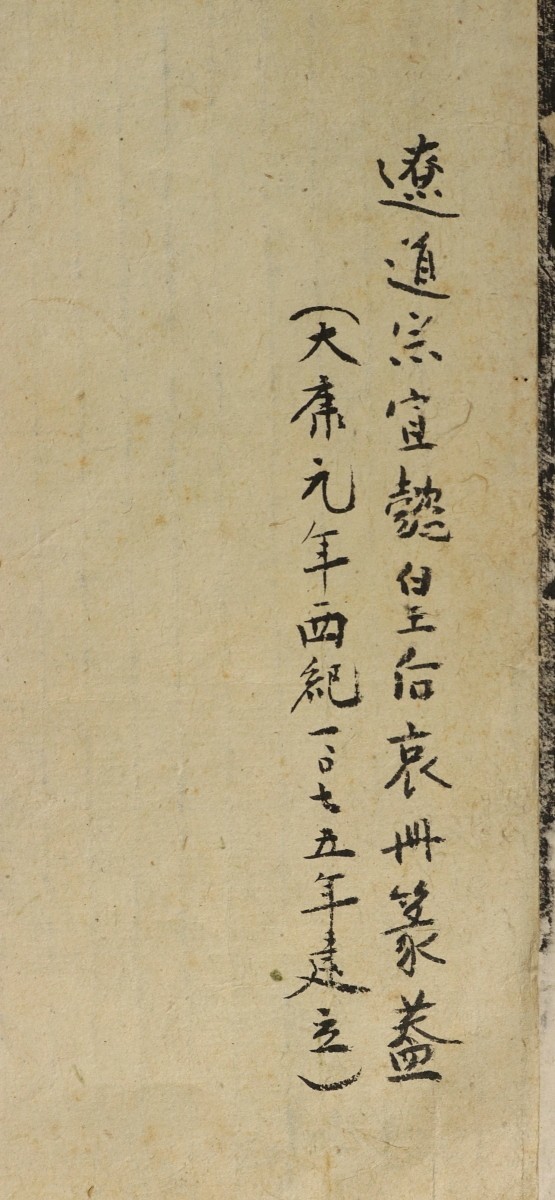 遼道宗宣懿皇后哀冊篆蓋
（大康元年西紀一〇七五年建立）